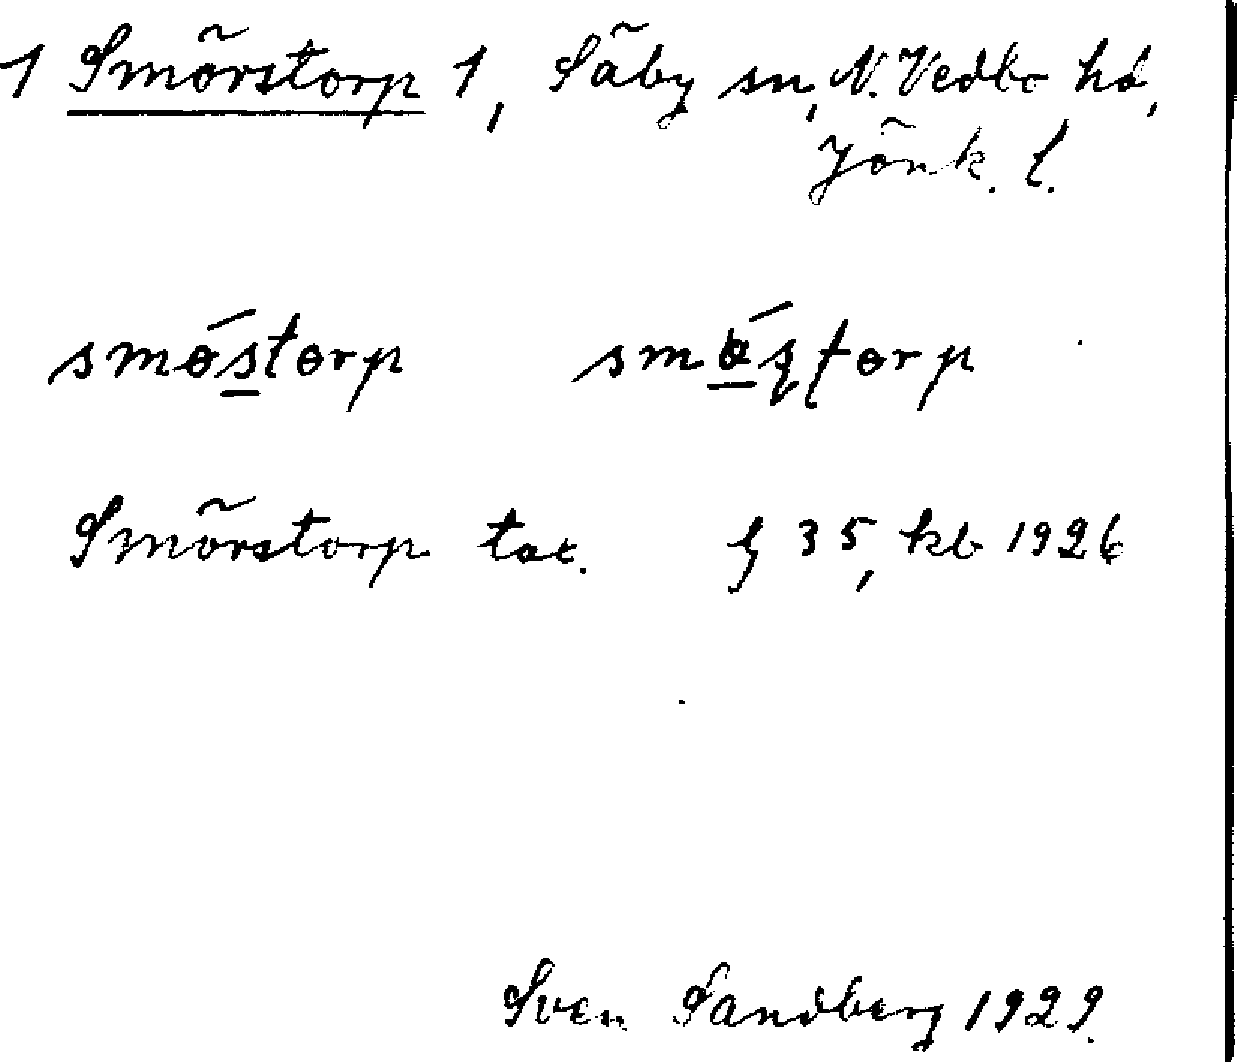 1 Smörstorp 1, Säby sn, N. Vedbo hd,
Jönk. l.
smɵ́storp smɵ́ʂʈɵrp
Smörstorp tax. J 35, kb 1926
Sven Sandberg 1929.